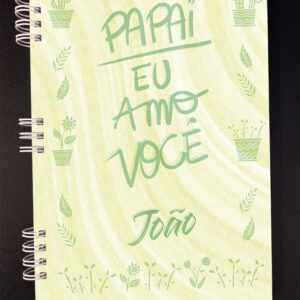 PAPAI
EU
AMO
VOCÊ
João